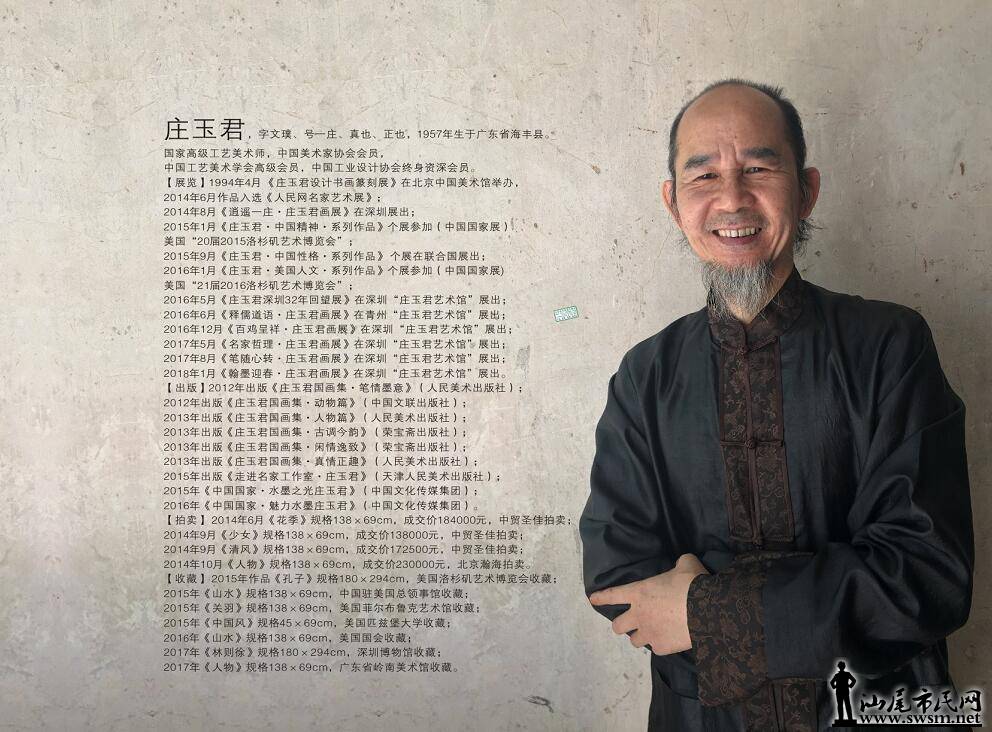 庄玉君，字文璞、号一庄、真也、正也，1957年生于广东省海丰县。
国家高级工艺美术师，中国美术家协会会员，
中国工艺美术学会高级会员，中国工业设计协会终身资深会员。
【展览】1994年4月《庄玉君设计书画篆刻展》在北京中国美术馆举办，
2014年6月作品入选《人民网名家艺术展》；
2014年8月《逍遥一庄·庄玉君画展》在深圳展出；
2015年1月《庄玉君·中国精神·系列作品》个展参加（中国国家展）
美国“20届2015洛杉矶艺术博览会”；
2015年9月《庄玉君·中国性格·系列作品》个展在联合国展出；
2016年1月《庄玉君·美国人文·系列作品》个展参加（中国国家展)
美国“21届2016洛杉矶艺术博览会”；
2016年5月《庄玉君深圳32年回望展》在深圳“庄玉君艺术馆”展出；
2016年6月《释儒道语·庄玉君画展》在青州“庄玉君艺术馆”展出；
2016年12月《百鸡呈祥·庄玉君画展》在深圳“庄玉君艺术馆”展出；
2017年5月《名家哲理·庄玉君画展》在深圳“庄玉君艺术馆”展出；
2017年8月《笔随心转·庄玉君画展》在深圳“庄玉君艺术馆”展出；
2018年1月《翰墨迎春·庄玉君画展》在深圳“庄玉君艺术馆”展出。
【出版】2012年出版《庄玉君国画集·笔情墨意》（人民美术出版社）；
2012年出版《庄玉君国画集·动物篇》（中国文联出版社）；
2013年出版《庄玉君国画集·人物篇》（人民美术出版社）；
2013年出版《庄玉君国画集·古调今韵》（荣宝斋出版社）；
2013年出版《庄玉君国画集·闲情逸致》（荣宝斋出版社）；
2013年出版《庄玉君国画集·真情正趣》（人民美术出版社）；
2015年出版《走进名家工作室·庄玉君》（天津人民美术出版社）；
2015年《中国国家·水墨之光庄玉君》（中国文化传媒集团）；
2016年《中国国家·魅力水墨庄玉君》（中国文化传媒集团）。
【拍卖】2014年6月《花季》规格138×69cm，成交价184000元，中贸圣佳拍卖；
2014年9月《少女》规格138×69cm，成交价138000元，中贸圣佳拍卖；
2014年9月《清风》规格138×69cm，成交价172500元，中贸圣佳拍卖；
2014年10月《人物》规格138×69cm，成交价230000元，北京瀚海拍卖。
【收藏】2015年作品《孔子》规格180×294cm，美国洛杉矶艺术博览会收藏；
2015年《山水》规格138×69cm，中国驻美国总领事馆收藏；
2015年《关羽》规格138×69cm，美国菲尔布鲁克艺术馆收藏；
2015年《中国风》规格45×69cm，美国匹兹堡大学收藏；
2016年《山水》规格138×69cm，美国国会收藏；
2017年《林则徐》规格180×294cm，深圳博物馆收藏；
2017年《人物》规格138×69cm，广东省岭南美术馆收藏。
汕尾市民网
www.swsm.net